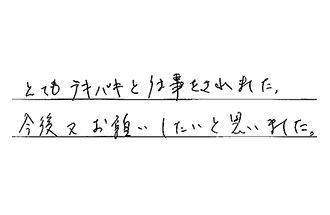 とてもテキパキと仕事をされました、
今後又お願いしたいと思いました。